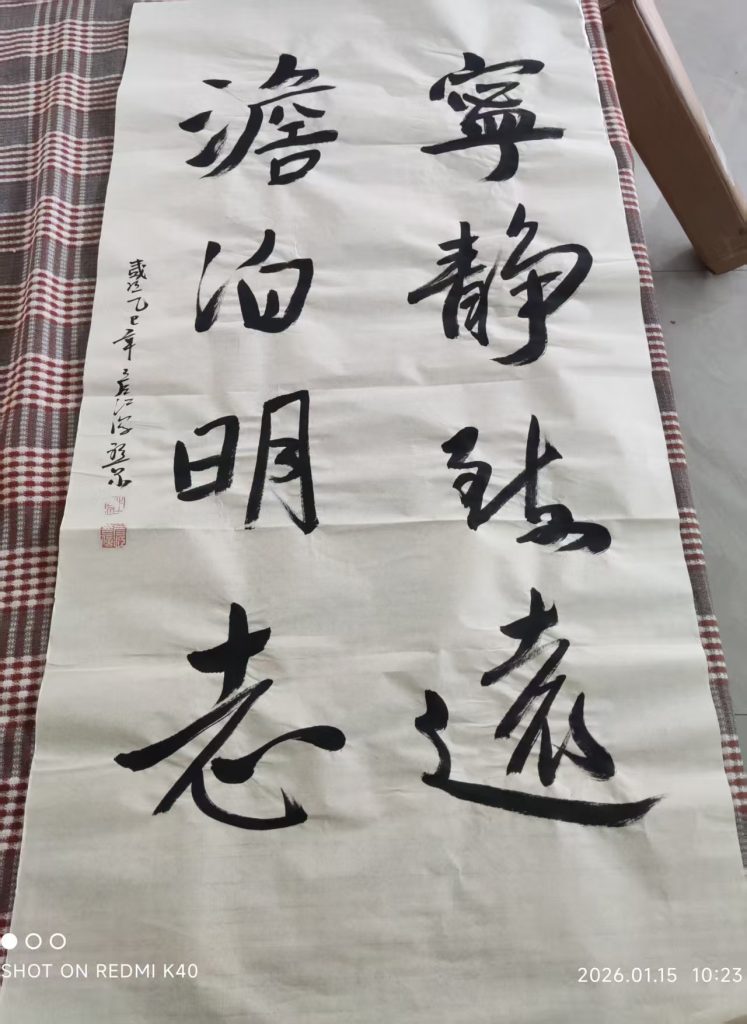 寧靜致遠
澹泊明志
歲次乙巳年
SHOT ON REDMI K40
2026.01.15 10:23